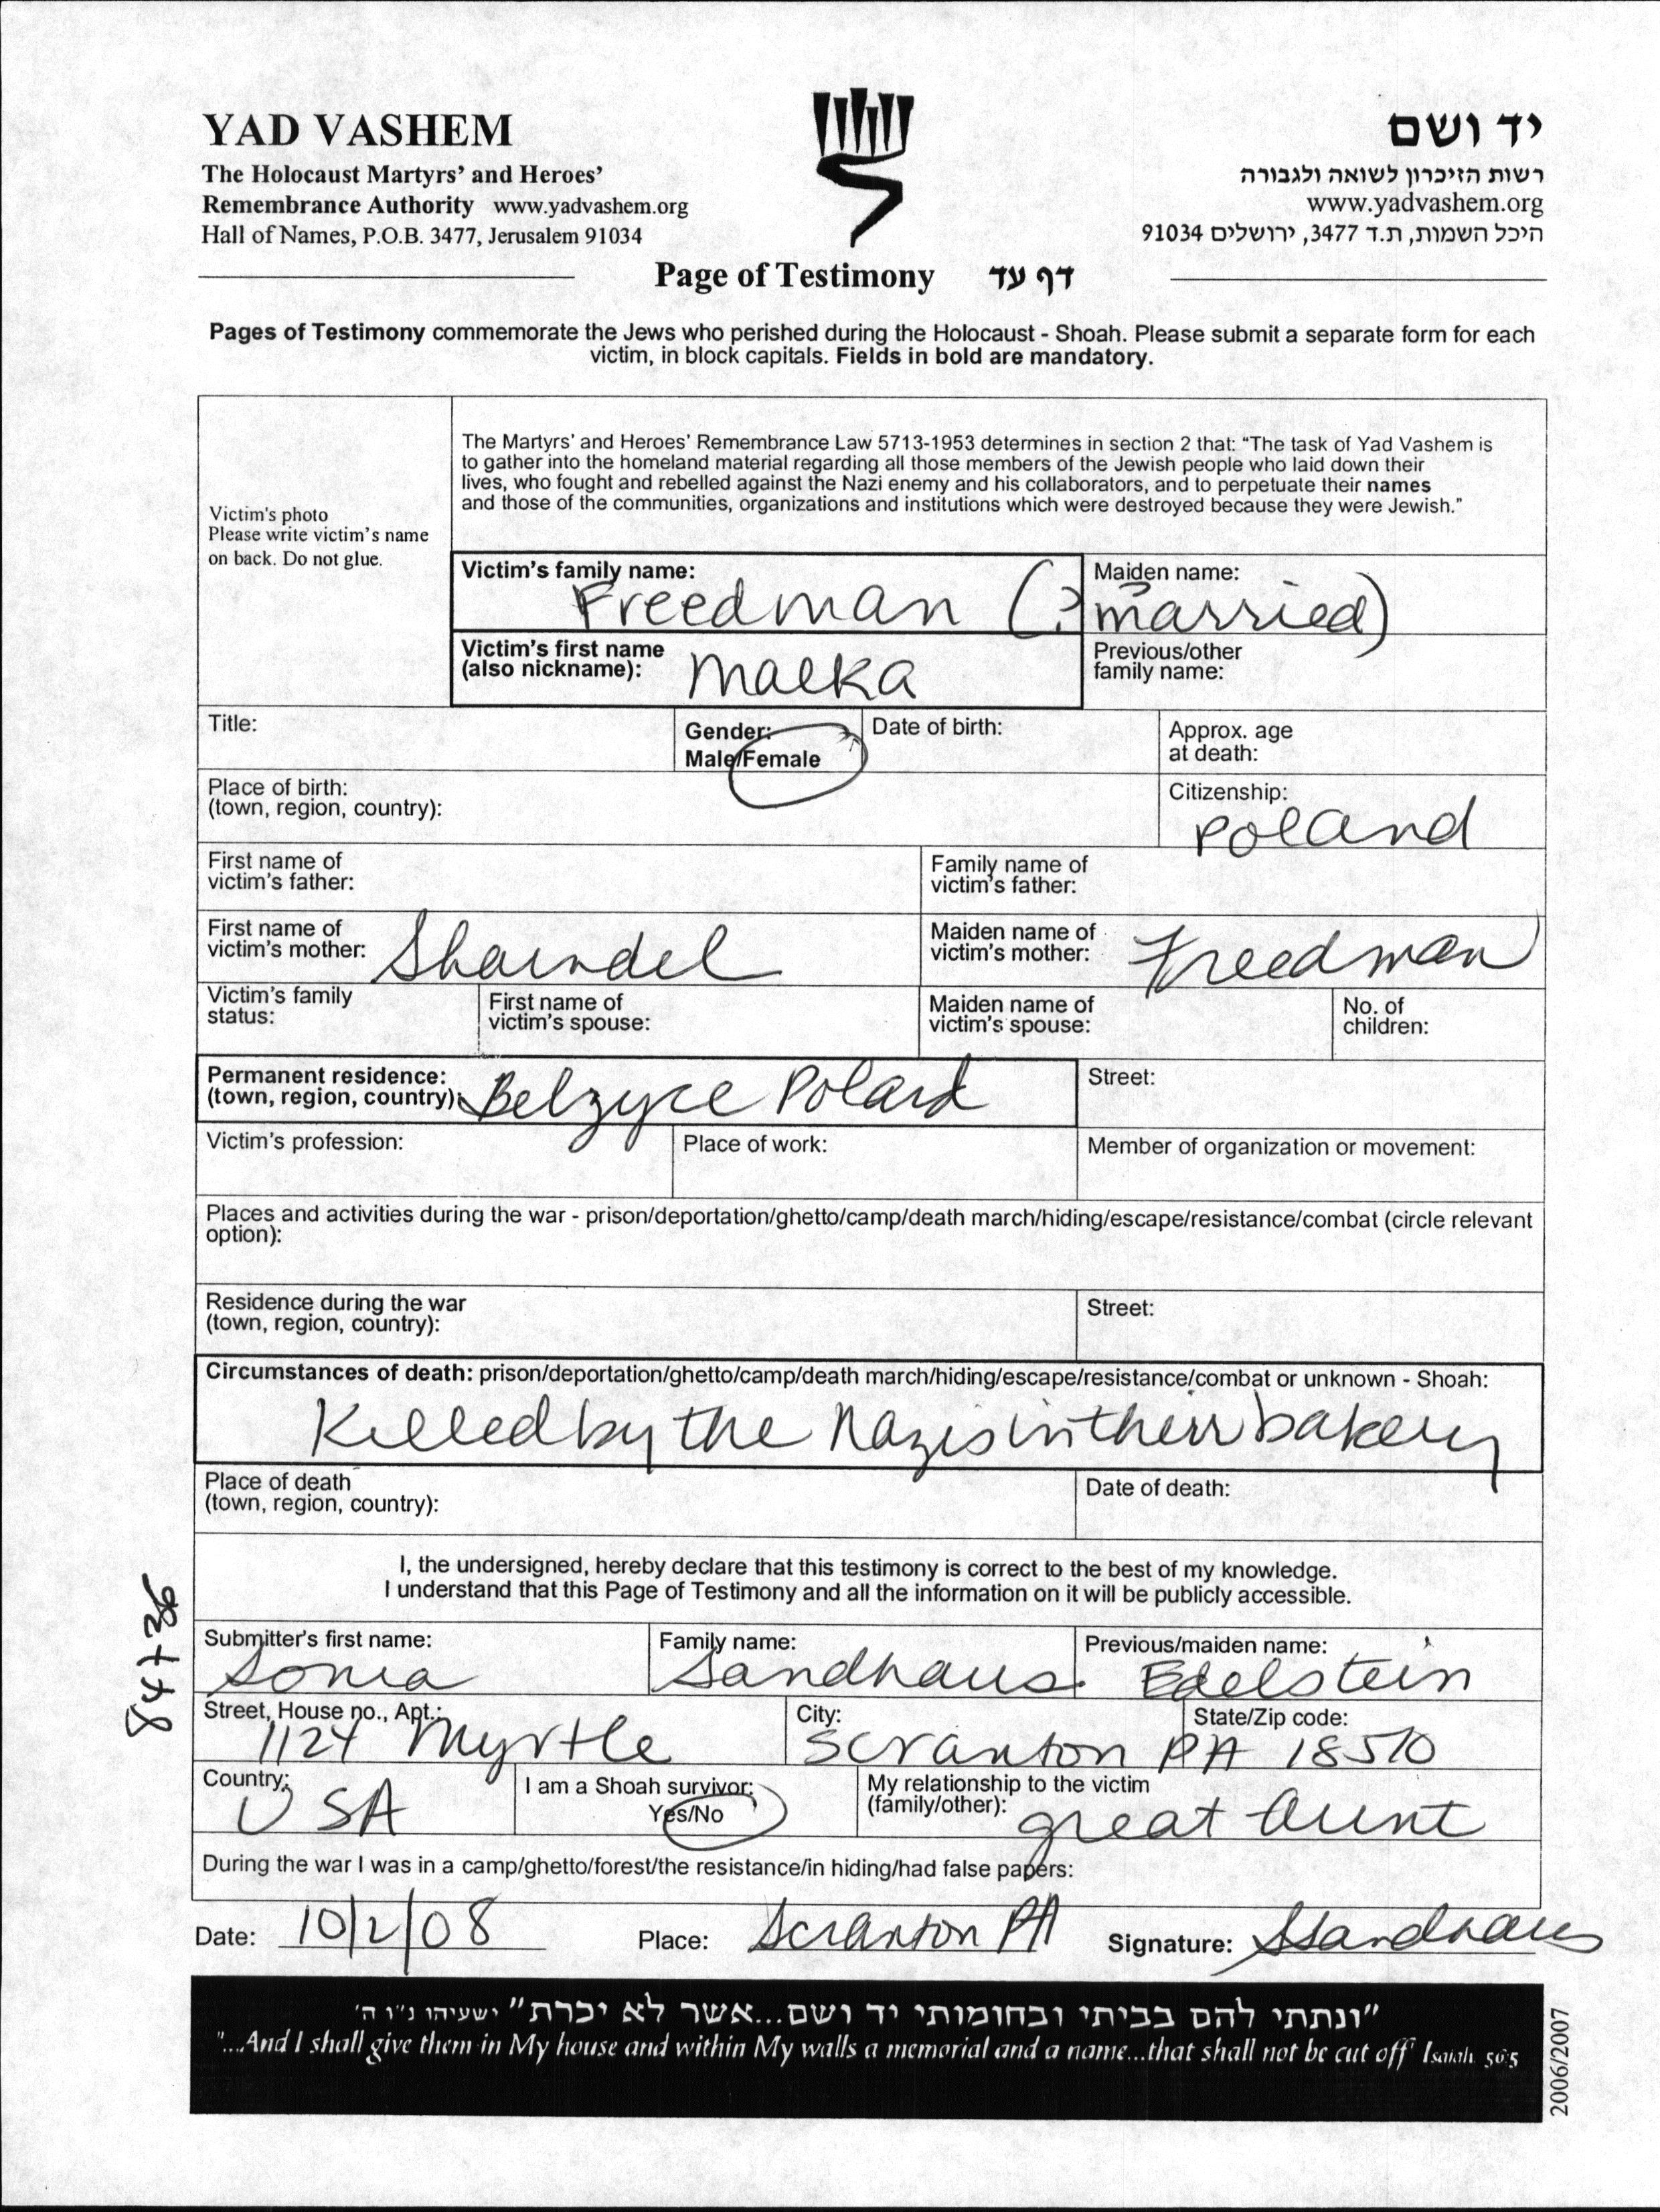 YAD VASHEM
The Holocaust Martyrs' and Heroes'
Remembrance Authority www.yadvashem.org
Hall of Names, P.O.B. 3477, Jerusalem 91034
יד ושם
רשות הזיכרון לשואה ולגבורה
www.yadvashem.org
היכל השמות, ת.ד 3477, ירושלים 91034
Page of Testimony דף עד
Pages of Testimony commemorate the Jews who perished during the Holocaust - Shoah. Please submit a separate form for each
victim, in block capitals. Fields in bold are mandatory.
Victim's photo
Please write victim's name
on back. Do not glue.
The Martyrs' and Heroes' Remembrance Law 5713-1953 determines in section 2 that: "The task of Yad Vashem is
to gather into the homeland material regarding all those members of the Jewish people who laid down their
lives, who fought and rebelled against the Nazi enemy and his collaborators, and to perpetuate their names
and those of the communities, organizations and institutions which were destroyed because they were Jewish."
Victim's family name: Maiden name:
Freedman (? married)
Victim's first name (also nickname): Malka
Previous/other family name:
Title:
Gender: Male/Female
Date of birth:
Approx. age at death:
Place of birth: (town, region, country):
Citizenship: Poland
First name of victim's father:
Family name of victim's father:
First name of victim's mother: Shaindel
Maiden name of victim's mother: Freedman
Victim's family status:
First name of victim's spouse:
Maiden name of victim's spouse:
No. of children:
Permanent residence: (town, region, country): Belzyce Poland
Street:
Victim's profession:
Place of work:
Member of organization or movement:
Places and activities during the war - prison/deportation/ghetto/camp/death march/hiding/escape/resistance/combat (circle relevant
option):
Residence during the war (town, region, country):
Street:
Circumstances of death: prison/deportation/ghetto/camp/death march/hiding/escape/resistance/combat or unknown - Shoah:
Killed by the Nazis in their bakery
Place of death (town, region, country):
Date of death:
I, the undersigned, hereby declare that this testimony is correct to the best of my knowledge.
I understand that this Page of Testimony and all the information on it will be publicly accessible.
Submitter's first name: Sonia
Family name: Sandhaus
Previous/maiden name: Edelstein
Street, House no., Apt.: 1124 Myrtle
City: Scranton
State/Zip code: PA 18510
Country: USA
I am a Shoah survivor: Yes/No
My relationship to the victim (family/other): great Aunt
During the war I was in a camp/ghetto/forest/the resistance/in hiding/had false papers:
Date: 10/2/08
Place: Scranton PA
Signature: SSandhaus
"ונתתי להם בביתי ובחומותי יד ושם...אשר לא יכרת" ישעיהו נ"ו ה'
"...And I shall give them in My house and within My walls a memorial and a name...that shall not be cut off" Isaiah 56:5
2006/2007